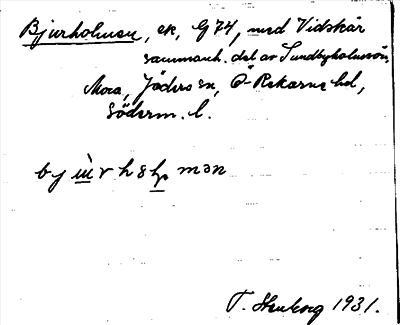 Bjurholmen, ek, G 74, med Vidskär
sammanh. del av Sundbyholmsön,
Mora, Jäders sn, Ö-Rekarne hd,
Söderm. l.
T. Stenborg 1931.